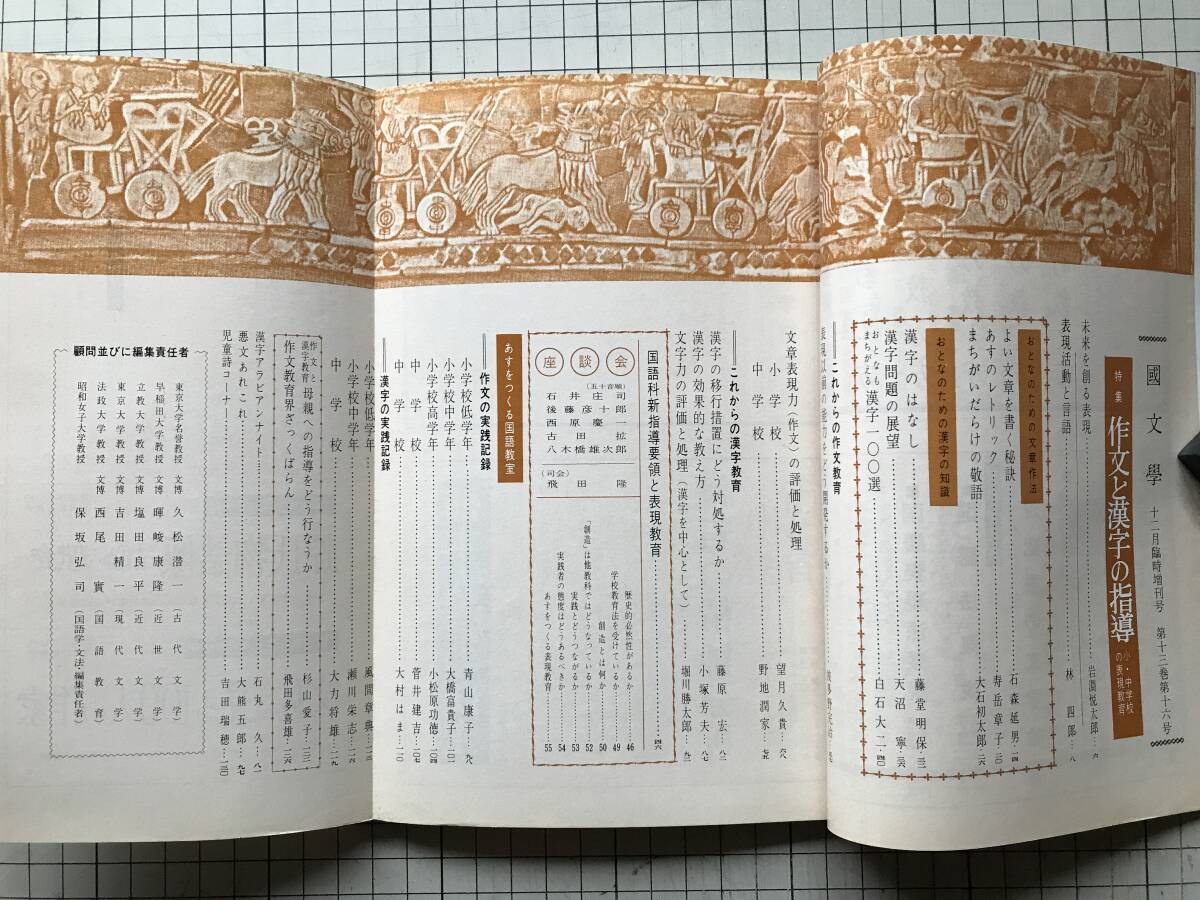 國文學 十二月臨時増刊号 第十三巻第十六号
特集 作文と漢字の指導 小・中学校の表現教育
未来を創る表現 岩淵悦太郎 六
表現活動と言語 林四郎 八
おとなのための文章作法
よい文章を書く秘訣 石森延男 一四
あすのレトリック 寿岳章子 二〇
まちがいだらけの敬語 大石初太郎 二六
おとなのための漢字の知識
漢字のはなし 藤堂明保 三二
漢字問題の展望 天沼寧 三六
おとなもまちがえる漢字一〇〇選 白石大二 一四〇
══これからの作文教育
文章表現力(作文)の評価と処理
小学校 望月久貴 六八
中学校 野地潤家 七五
══これからの漢字教育
漢字の移行措置にどう対処するか 藤原宏
漢字の効果的な教え方 小塚芳夫
文字力の評価と処理(漢字を中心として) 堀川勝太郎
国語科新指導要領と表現教育 四六
座談会
(五十音順)
石井庄司
後藤彦十郎
西原慶一
古田拡
八木橋雄次郎
(司会)
飛田隆
歴史的必然性があるか 46
学校教育法を受けているか 49
創造とは何か 50
「創造」は他教科ではどうなっているか 52
実践とどうつながるか 53
実践者の態度はどうあるべきか 54
あすをつくる表現教育 55
あすをつくる国語教室
══作文の実践記録
小学校低学年 青山康子 九八
小学校中学年 大橋富貴子 一〇一
小学校高学年 小松原功徳 一〇四
中学校 菅井建吉 一〇七
中学校 大村はま 一一〇
══漢字の実践記録
小学校低学年 風間章典
小学校中学年 瀬川栄志
中学校 大力将雄
作文と漢字教育 母親への指導をどう行なうか 杉山愛子
作文教育界ざっくばらん 飛田多喜雄
漢字アラビアンナイト 石丸久 八一
悪文あれこれ 大熊五郎 九七
児童詩コーナー 吉田瑞穂
顧問並びに編集責任者
東京大学名誉教授 文博 久松潜一(古代文学)
早稲田大学教授 文博 暉峻康隆(近世文学)
立教大学教授 文博 塩田良平(近代文学)
東京大学教授 文博 吉田精一(現代文学)
法政大学教授 文博 西尾實(国語教育)
昭和女子大学教授 保坂弘司(国語学・文法・編集責任者)